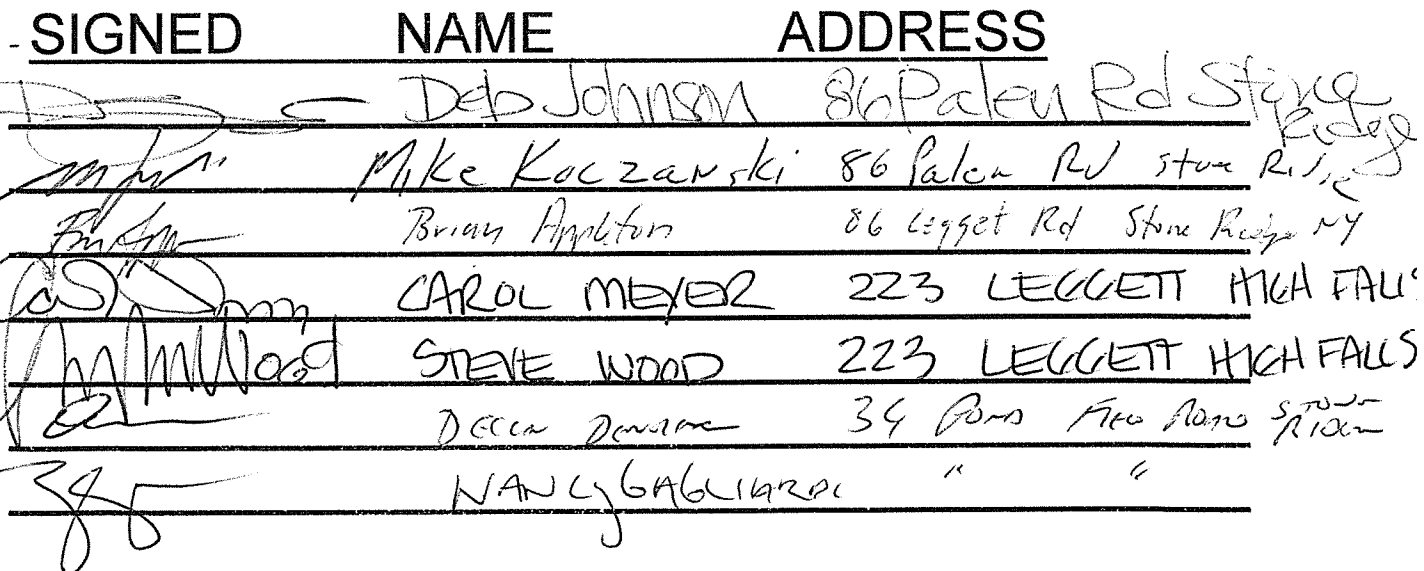 - SIGNED NAME ADDRESS
Deb Johnson 86 Palen Rd Stone Ridge
Mike Koczanski 86 Palen Rd Stone Ridge
Brian Appleton 86 Legget Rd Stone Ridge NY
CAROL MEYER 223 LEGGETT HIGH FALLS
Wood STEVE WOOD 223 LEGGETT HIGH FALLS
34 STONE RIDGE
NANCY GAGLIARDI " "